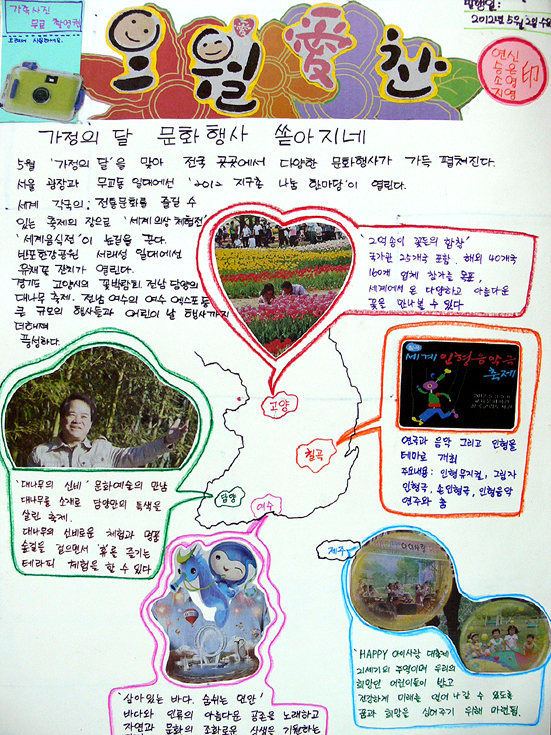 가족사진
무료 촬영권
오려서 사용하세요.
발행일:
2012년 5월 2일 수요
오월愛찬
연신
승은
소영
지영
印
가정의 달 문화행사 쏟아지네
5월 '가정의 달'을 맞아 전국 곳곳에서 다양한 문화행사가 가득 펼쳐진다.
서울 광장과 무교동 일대에선 '2012 지구촌 나눔 한마당'이 열린다.
세계 각국의 전통문화를 즐길 수
있는 축제의 장으로 '세계의상 체험전'
'세계음식전'이 눈길을 끈다.
반포한강공원 서래섬 일대에선
유채꽃 잔치가 열린다.
경기도 고양시의 꽃박람회, 전남 담양의
대나무 축제, 전남 여수의 여수 엑스포 등
큰 규모의 행사들과 어린이 날 행사까지
더해져
풍성하다.
'2억송이 꽃들의 합창'
국가관 25개국 포함. 해외 40개국
160개 업체 참가를 목표,
세계에서 온 다양하고 아름다운
꽃을 만나볼 수 있다
고양
세계인형음악극
축제
칠곡
연극과 음악 그리고 인형을
테마로 개최
주요내용: 인형뮤지컬, 그림자
인형극, 손인형극, 인형음악
연주와 춤
'대나무의 신비' 문화예술의 만남
대나무를 소재로 담양만의 특색을
살린 축제.
대나무의 신비로운 체험과 명품
숲길을 걸으면서 休를 즐기는
테라피 체험을 할 수 있다
담양
여수
제주
'살아있는 바다, 숨쉬는 연안'
바다와 인류의 아름다운 공존을 노래하고
자연과 문화의 조화로운 상생을 기원하는
'HAPPY 아이사랑 대축제'
21세기의 주역이며 우리의
희망인 어린이들이 밝고
건강하게 미래를 열어나갈 수 있도록
꿈과 희망을 심어주기 위해 마련됨.